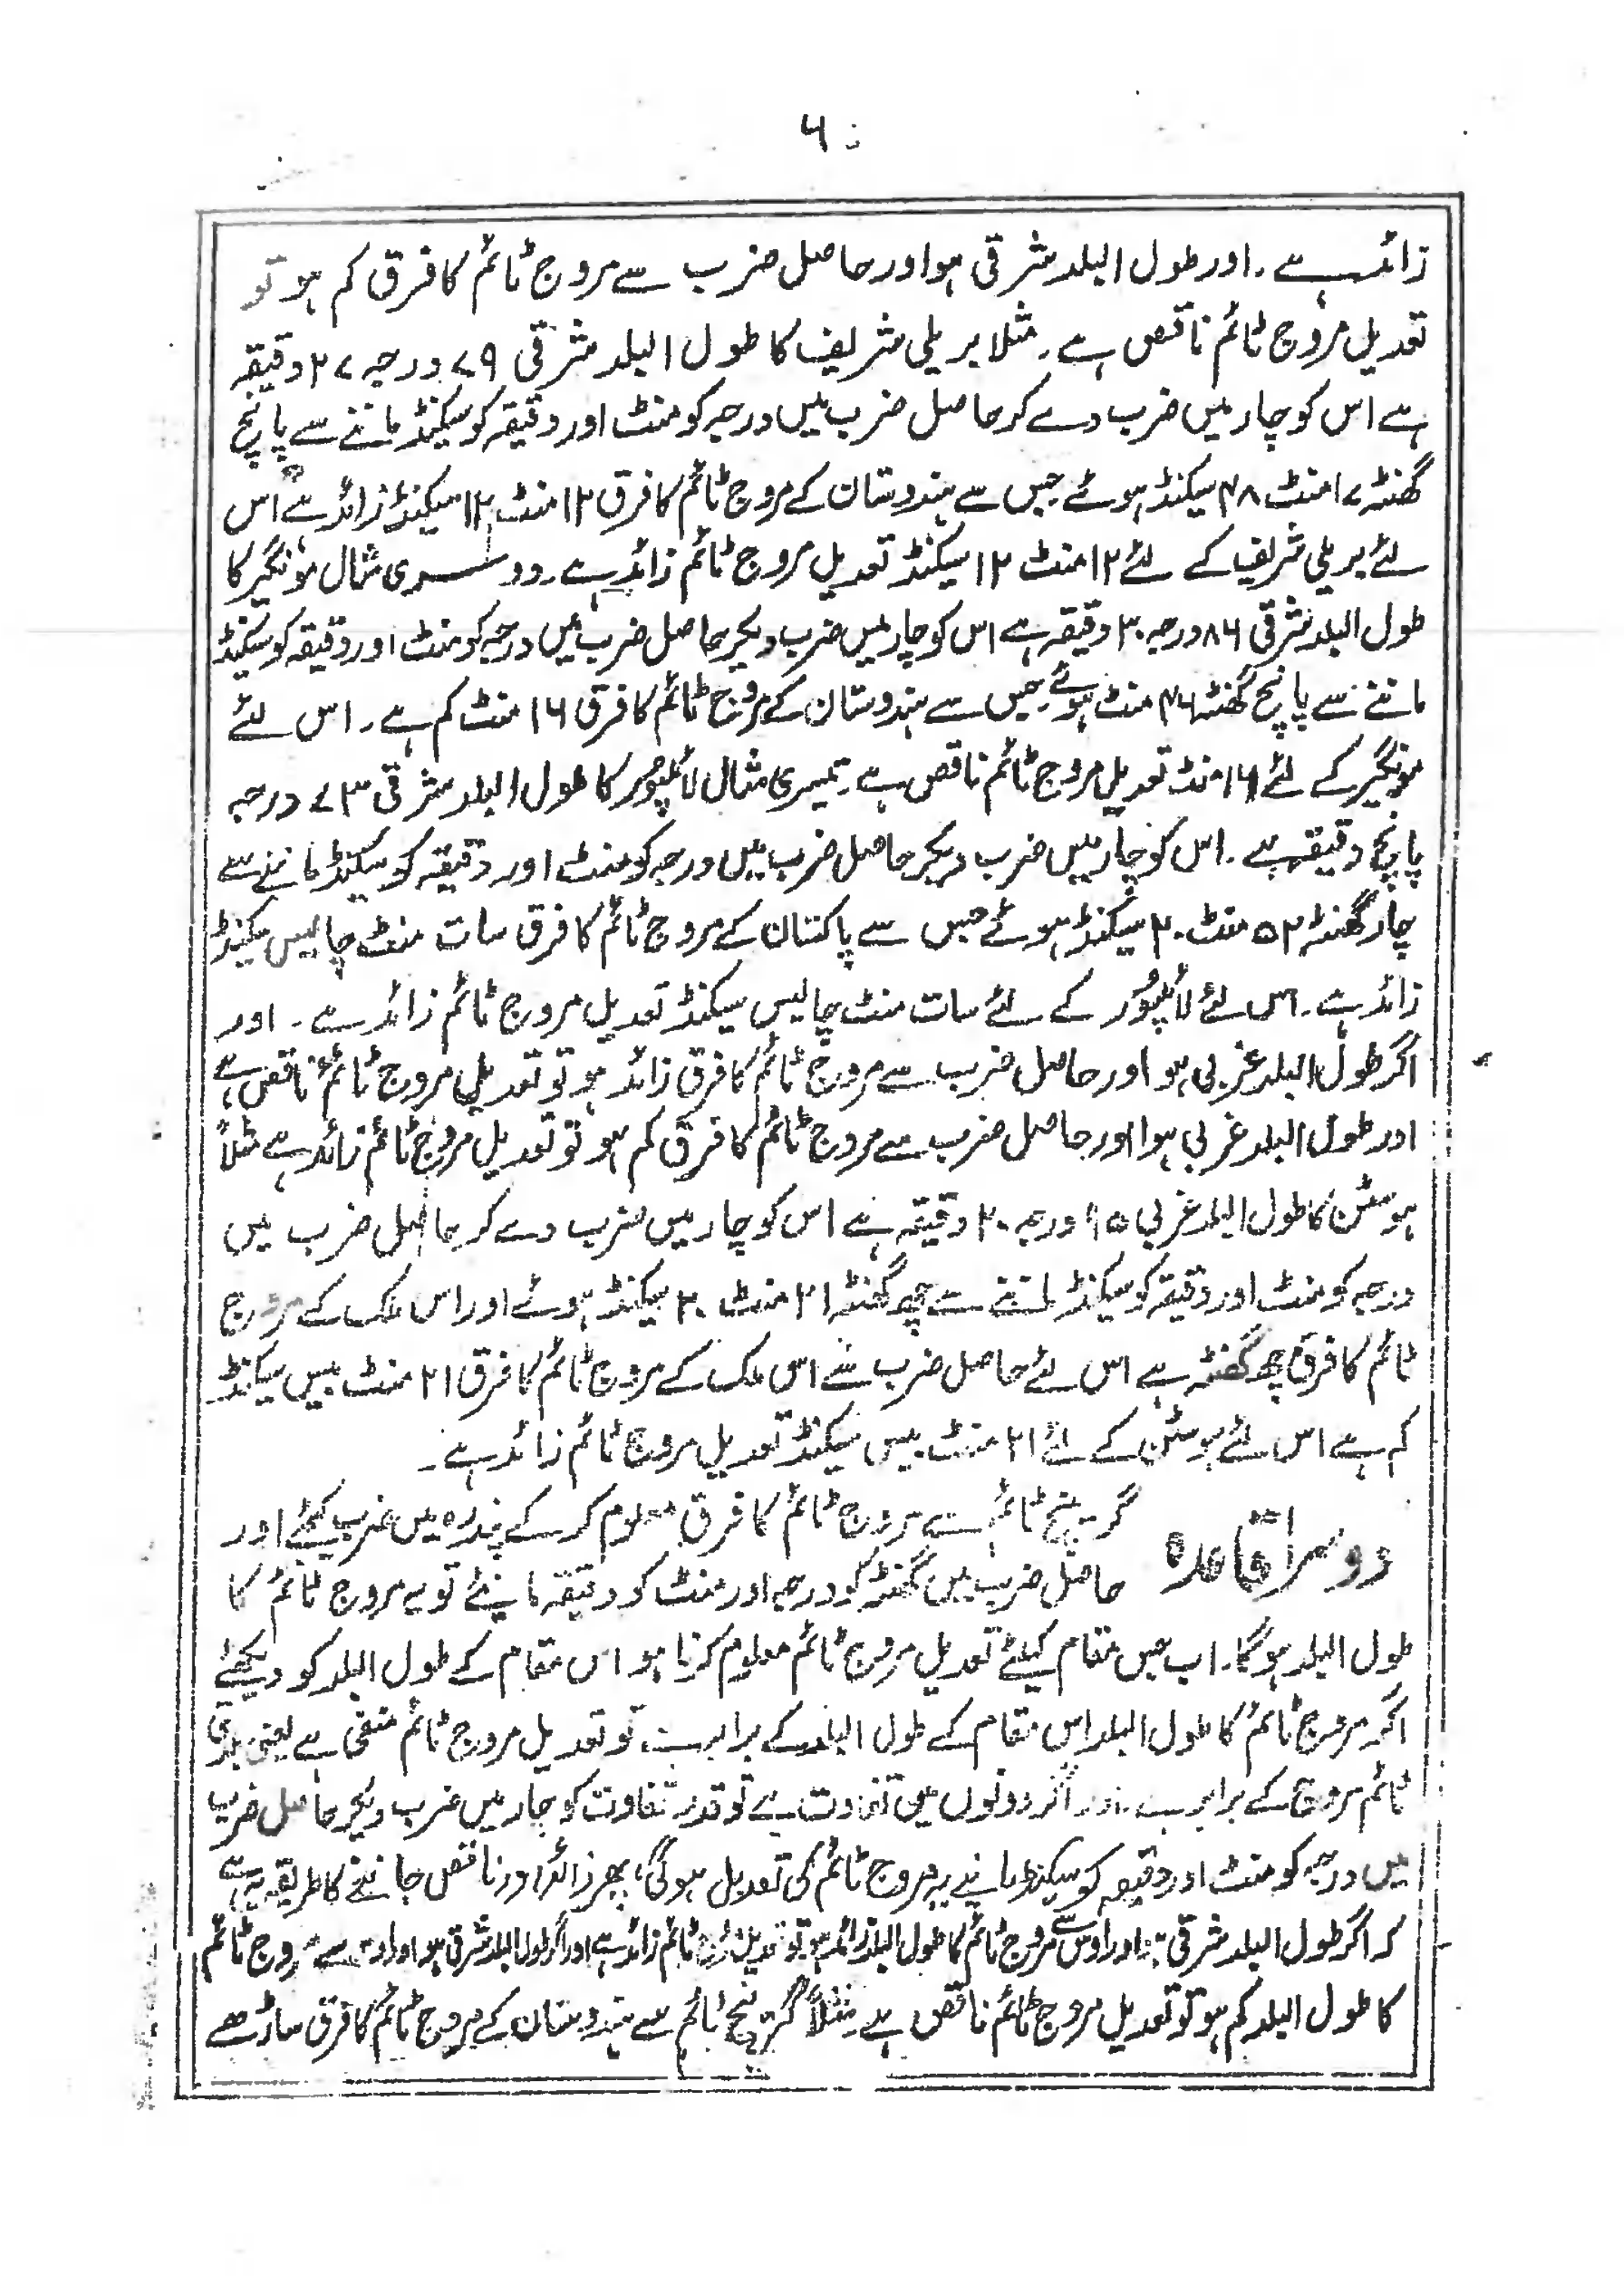 ۶
زائد ہے۔ اور طول البلد شرقی ہو اور حاصل ضرب سے مروج ٹائم کا فرق کم ہو تو
تعدیل مروج ٹائم ناقص ہے۔ مثلا بریلی شریف کا طول البلد شرقی ۷۹ درجہ ۲۷ دقیقہ
ہے اس کو چار میں ضرب دے کر حاصل ضرب میں درجہ کو منٹ اور دقیقہ کو سیکنڈ ماننے سے پانچ
گھنٹہ ۱۷ منٹ ۴۸ سیکنڈ ہوئے جس سے ہندوستان کے مروج ٹائم کا فرق ۱۲ منٹ ۱۲ سیکنڈ زائد ہے اس
لئے بریلی شریف کے لئے ۱۲ منٹ ۱۲ سیکنڈ تعدیل مروج ٹائم زائد ہے۔ دوسری مثال مونگیر کا
طول البلد شرقی ۸۶ درجہ ۳۰ دقیقہ ہے اس کو چار میں ضرب دیکر حاصل ضرب میں درجہ کو منٹ اور دقیقہ کو سیکنڈ
ماننے سے پانچ گھنٹہ ۴۶ منٹ ہوئے جس سے ہندوستان کے مروج ٹائم کا فرق ۱۶ منٹ کم ہے۔ اس لئے
مونگیر کے لئے ۱۶ منٹ تعدیل مروج ٹائم ناقص ہے۔ تیسری مثال لائلپور کا طول البلد شرقی ۷۳ درجہ
پانچ دقیقہ ہے۔ اس کو چار میں ضرب دیکر حاصل ضرب میں درجہ کو منٹ اور دقیقہ کو سیکنڈ ماننے سے
چار گھنٹہ ۵۲ منٹ ۲۰ سیکنڈ ہوئے جس سے پاکستان کے مروج ٹائم کا فرق سات منٹ چالیس سیکنڈ
زائد ہے۔ اس لئے لائلپور کے لئے سات منٹ چالیس سیکنڈ تعدیل مروج ٹائم زائد ہے۔ اور
اگر طول البلد غربی ہو اور حاصل ضرب سے مروج ٹائم کا فرق زائد ہو تو تعدیل مروج ٹائم ناقص ہے
اور طول البلد غربی ہو اور حاصل ضرب سے مروج ٹائم کا فرق کم ہو تو تعدیل مروج ٹائم زائد ہے مثلاً
ہوسٹن کا طول البلد غربی ۹۵ درجہ ۲۰ دقیقہ ہے اس کو چار میں ضرب دے کر حاصل ضرب میں
درجہ کو منٹ اور دقیقہ کو سیکنڈ ماننے سے چھ گھنٹہ ۲۱ منٹ ۲۰ سیکنڈ ہوئے اور اس ملک کے مروج
ٹائم کا فرق چھ گھنٹہ ہے اس لئے حاصل ضرب سے اس ملک کے مروج ٹائم کا فرق ۲۱ منٹ بیس سیکنڈ
کم ہے اس لئے ہوسٹن کے لئے ۲۱ منٹ بیس سیکنڈ تعدیل مروج ٹائم زائد ہے۔
دوسرا قاعدہ گرینچ ٹائم سے مروج ٹائم کا فرق معلوم کر کے پندرہ میں ضرب کیجئے اور
حاصل ضرب میں گھنٹہ کو درجہ اور منٹ کو دقیقہ مانیئے تو یہ مروج ٹائم کا
طول البلد ہوگا۔ اب جس مقام کیلئے تعدیل مروج ٹائم معلوم کرنا ہو اس مقام کے طول البلد کو دیکھئے
اگر مروج ٹائم کا طول البلد اس مقام کے طول البلد کے برابر ہے تو تعدیل مروج ٹائم منفی ہے یعنی بلدی
ٹائم مروج کے برابر ہے۔ اور اگر دونوں میں تفاوت ہے تو قدر تفاوت کو چار میں ضرب دیکر حاصل ضرب
میں درجہ کو منٹ اور دقیقہ کو سیکنڈ مانیئے یہ مروج ٹائم کی تعدیل ہوگی، پھر زائد اور ناقص جاننے کا طریقہ یہ ہے
کہ اگر طول البلد شرقی ہو اور اوس سے مروج ٹائم کا طول البلد زائد ہو تو تعدیل مروج ٹائم زائد ہے اور اگر طول البلد شرقی ہو اور اوس سے مروج ٹائم
کا طول البلد کم ہو تو تعدیل مروج ٹائم ناقص ہے مثلاً گرینچ ٹائم سے ہندوستان کے مروج ٹائم کا فرق ساڑھے